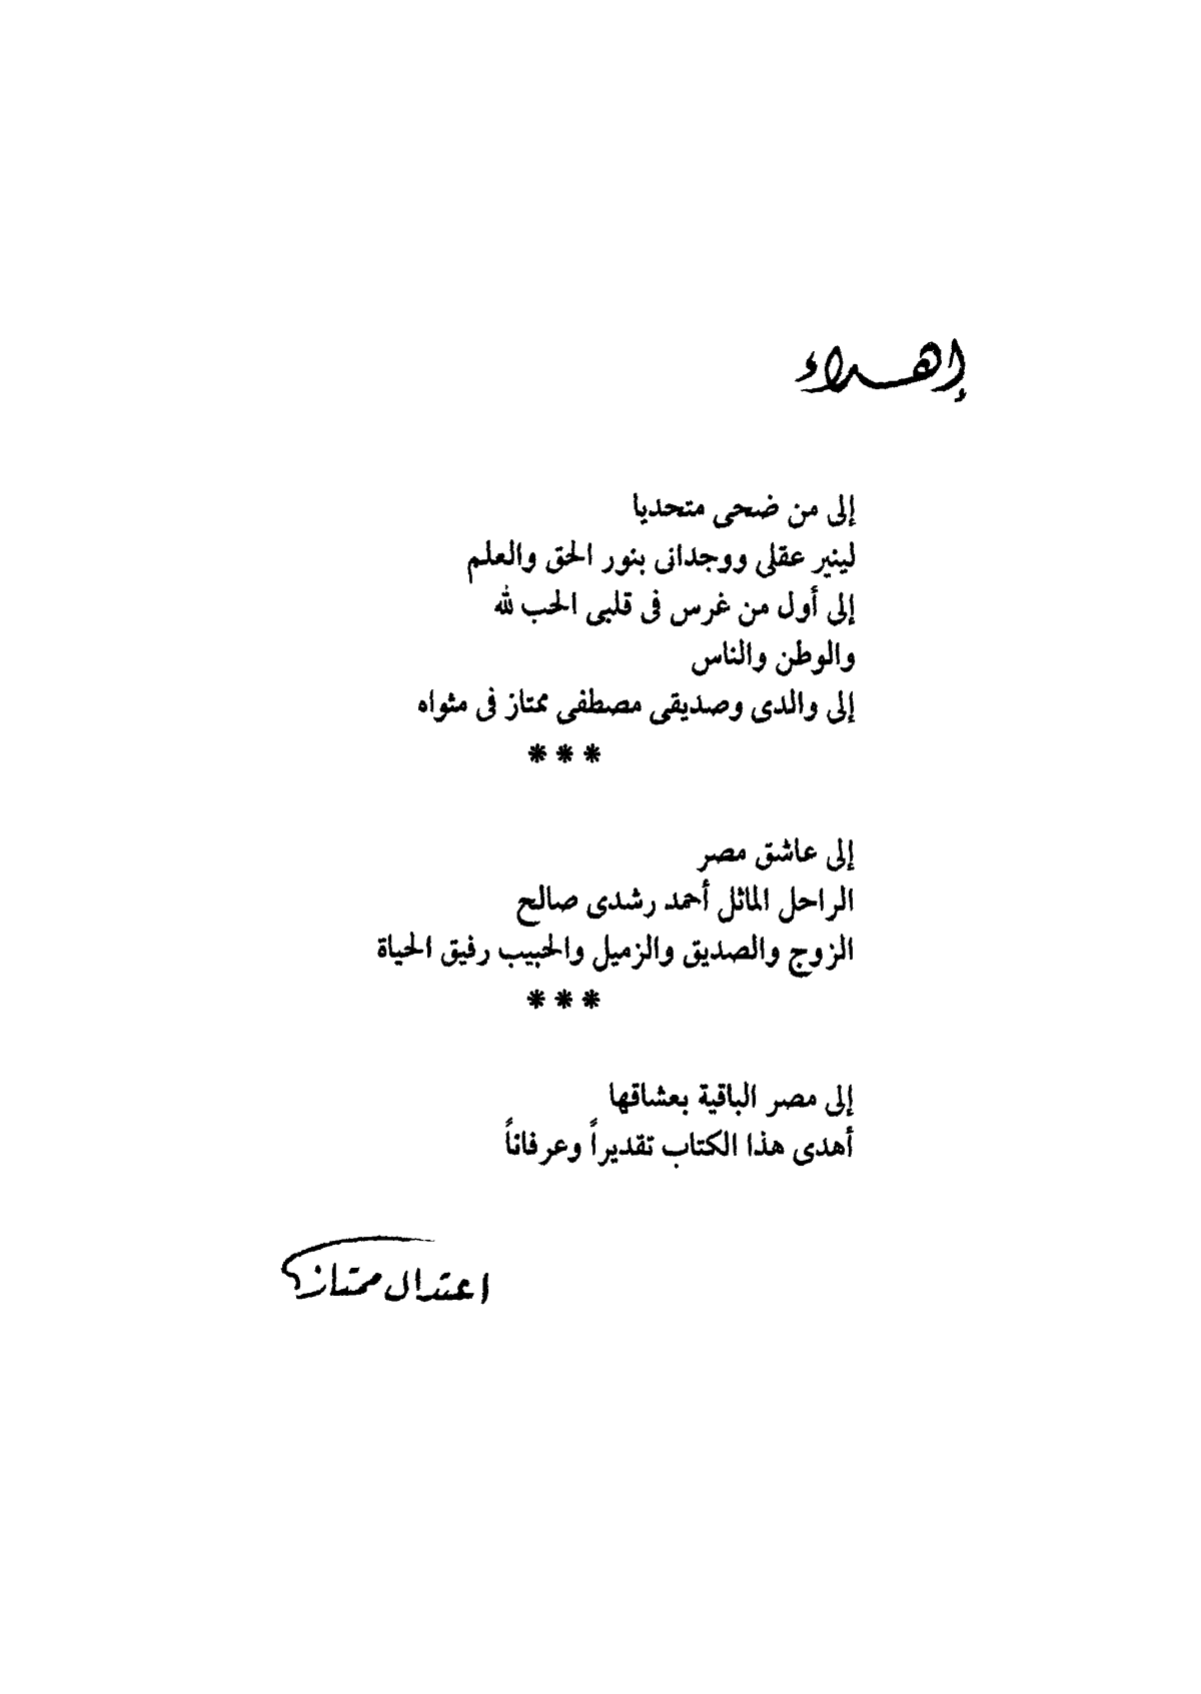 إهداء
إلى من ضحى متحديا
لينير عقلى ووجدانى بنور الحق والعلم
إلى أول من غرس فى قلبى الحب لله
والوطن والناس
إلى والدى وصديقى مصطفى ممتاز فى مثواه
***
إلى عاشق مصر
الراحل الماثل أحمد رشدى صالح
الزوج والصديق والزميل والحبيب رفيق الحياة
***
إلى مصر الباقية بعشاقها
أهدى هذا الكتاب تقديراً وعرفاناً
اعتدال ممتاز